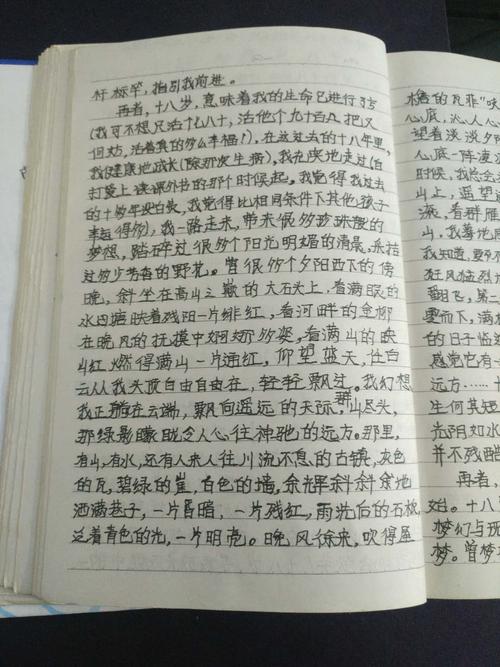 杆标竿，指引我前进。
再者，十八岁，意味着我的生命已进行1/5
(我可不想只活个八十，活他个九十百八把又
何妨，活着真的多么幸福！)，在这过去的十八年里，
我健康地成长(除那次生病)，我充实地走过(自
打爱上读课外书的那个时候起，我觉得我过去
的十几年没白哀，我觉得比相同条件下其他孩子
幸运得多)，我一路走来，带来很多珍珠般的
梦想，踏碎过很多个阳光明媚的清晨，采拮
过多少芳香的野花。曾很多个夕阳西下的傍
晚，斜坐在高山之巅的大石头上，看满眼的
水田塘映着残阳一片绯红，看河畔的金柳
在晚风的抚摸中婀娜多姿，看满山的映
山红燃得满山一片通红，仰望蓝天，任白
云从我头顶自由自在，轻轻飘过。我幻想
我正躺在云端，飘向遥远的天际，群山尽头，
那绿影朦胧令人心往神驰的远方。那里，
有山，有水，还有人来人往川流不息的古镇，灰色
的瓦，碧绿的崖，白色的墙，余晖斜斜地
洒满巷子，一片昏暗，一片残红，雨洗后的石板
泛着青色的光，一片明亮。晚风徐来，吹得屋
檐的瓦菲"咴
心底，沁人心
望着淡淡夕阳
心底一阵凄凉
时候，我总会
山上，遥望
流，看群雁
山，我蓦地
我知道，要不
狂风猛烈
翻飞，第二
零而下，满
的日子临近
感觉它有一
远方……
生何其短
光阴如水
并不残酷
再者，
始。十八
梦幻与现
梦。曾梦